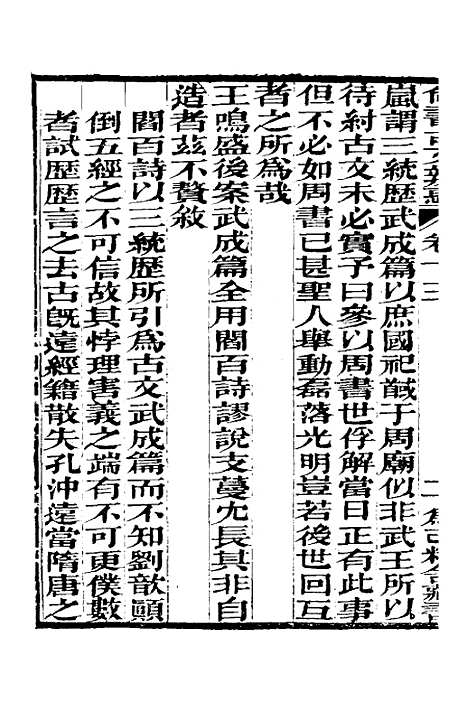 嵐謂三統歷武成篇以庶國祀馘于周廟似非武王所以
待紂古文未必實予曰參以周書世俘解當日正有此事
但不必如周書已甚聖人舉動磊落光明豈若後世回互
者之所爲哉
王鳴盛後案武成篇全用閻百詩謬說支蔓冗長其非自
造者茲不贅敘
閻百詩以三統歷所引爲古文武成篇而不知劉歆顚
倒五經之不可信故其悖理害義之端有不可更僕數
者試歷歷言之去古旣遠經籍散失孔沖遠當隋唐之